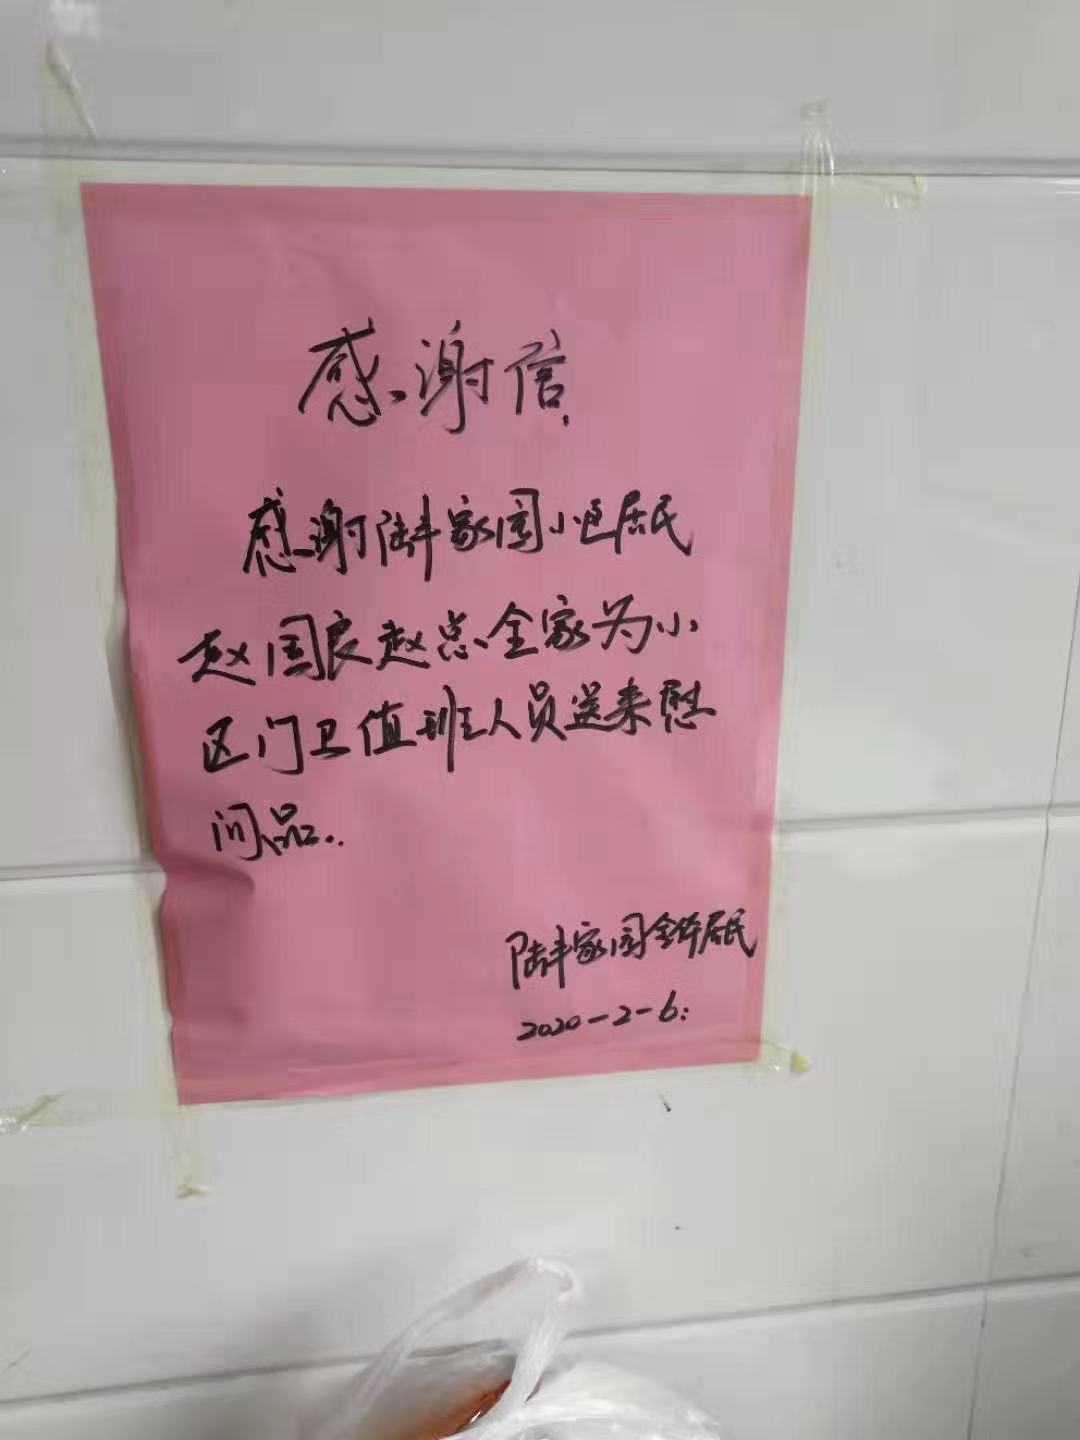 感谢信
感谢陆丰家园小区居民
赵国良赵总全家为小
区门卫值班人员送来慰
问品..
陆丰家园全体居民
2020-2-6: